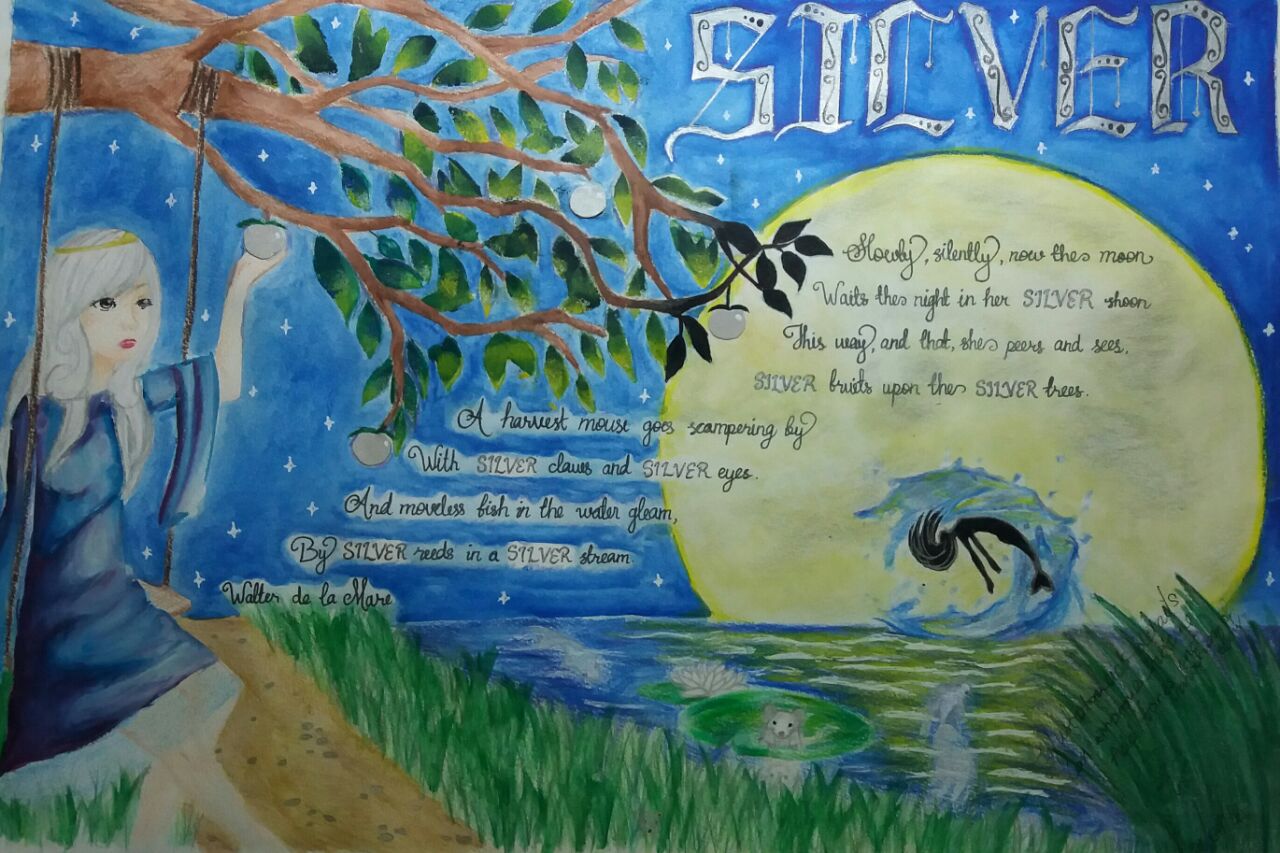 SILVER
Slowly, silently, now the moon
Waits the night in her SILVER shoon
This way, and that, she peers and sees,
SILVER fruits upon the SILVER trees.
A harvest mouse goes scampering by
With SILVER claws and SILVER eyes.
And moveless fish in the water gleam,
By SILVER reeds in a SILVER stream.
Walter de la Mare